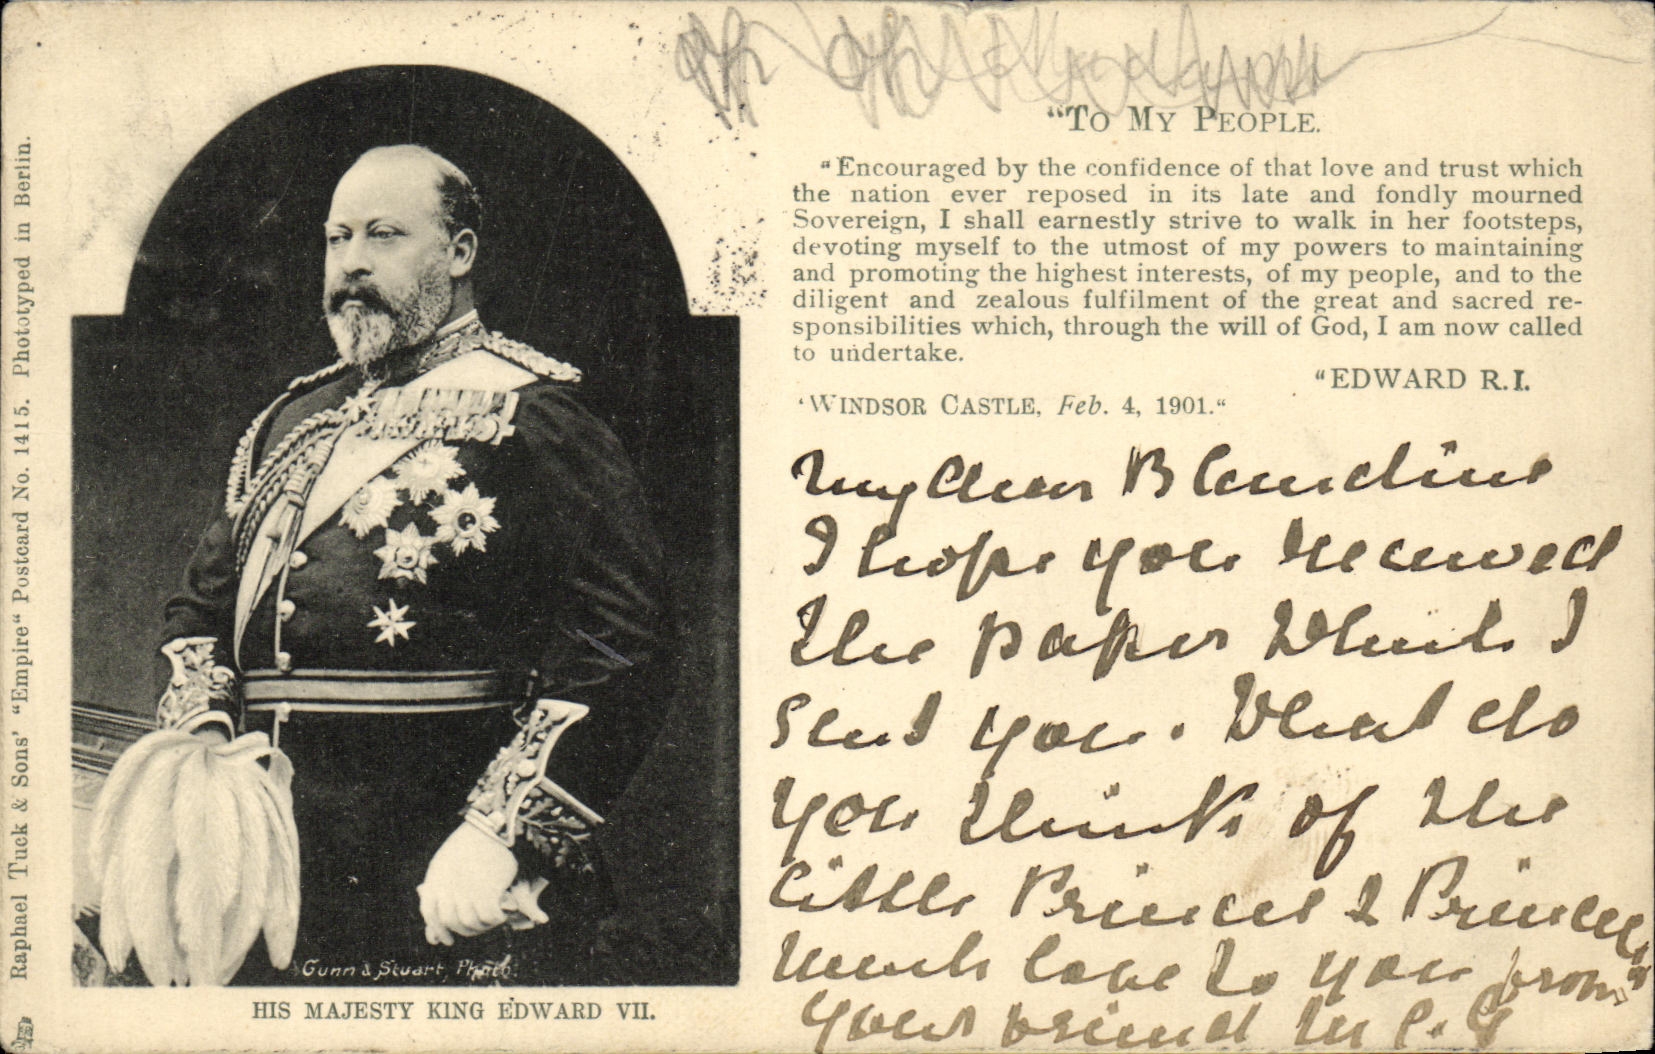 "TO MY PEOPLE.
"Encouraged by the confidence of that love and trust which
the nation ever reposed in its late and fondly mourned
Sovereign, I shall earnestly strive to walk in her footsteps,
devoting myself to the utmost of my powers to maintaining
and promoting the highest interests, of my people, and to the
diligent and zealous fulfilment of the great and sacred re-
sponsibilities which, through the will of God, I am now called
to undertake.
"EDWARD R.I.
'WINDSOR CASTLE, Feb. 4, 1901."
My dear Blandine
I hope you received
the paper which I
sent you. What do
you think of the
little Princes & Princess
much love to you from
your friend M
Gunn & Stuart, Photo.
HIS MAJESTY KING EDWARD VII.
Raphael Tuck & Sons' "Empire" Postcard No. 1415. Phototyped in Berlin.